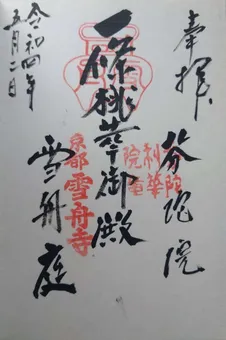 奉拝
芬陀院
一條桃華御殿
雪舟庭
令和四年
五月二日
京都雪舟寺